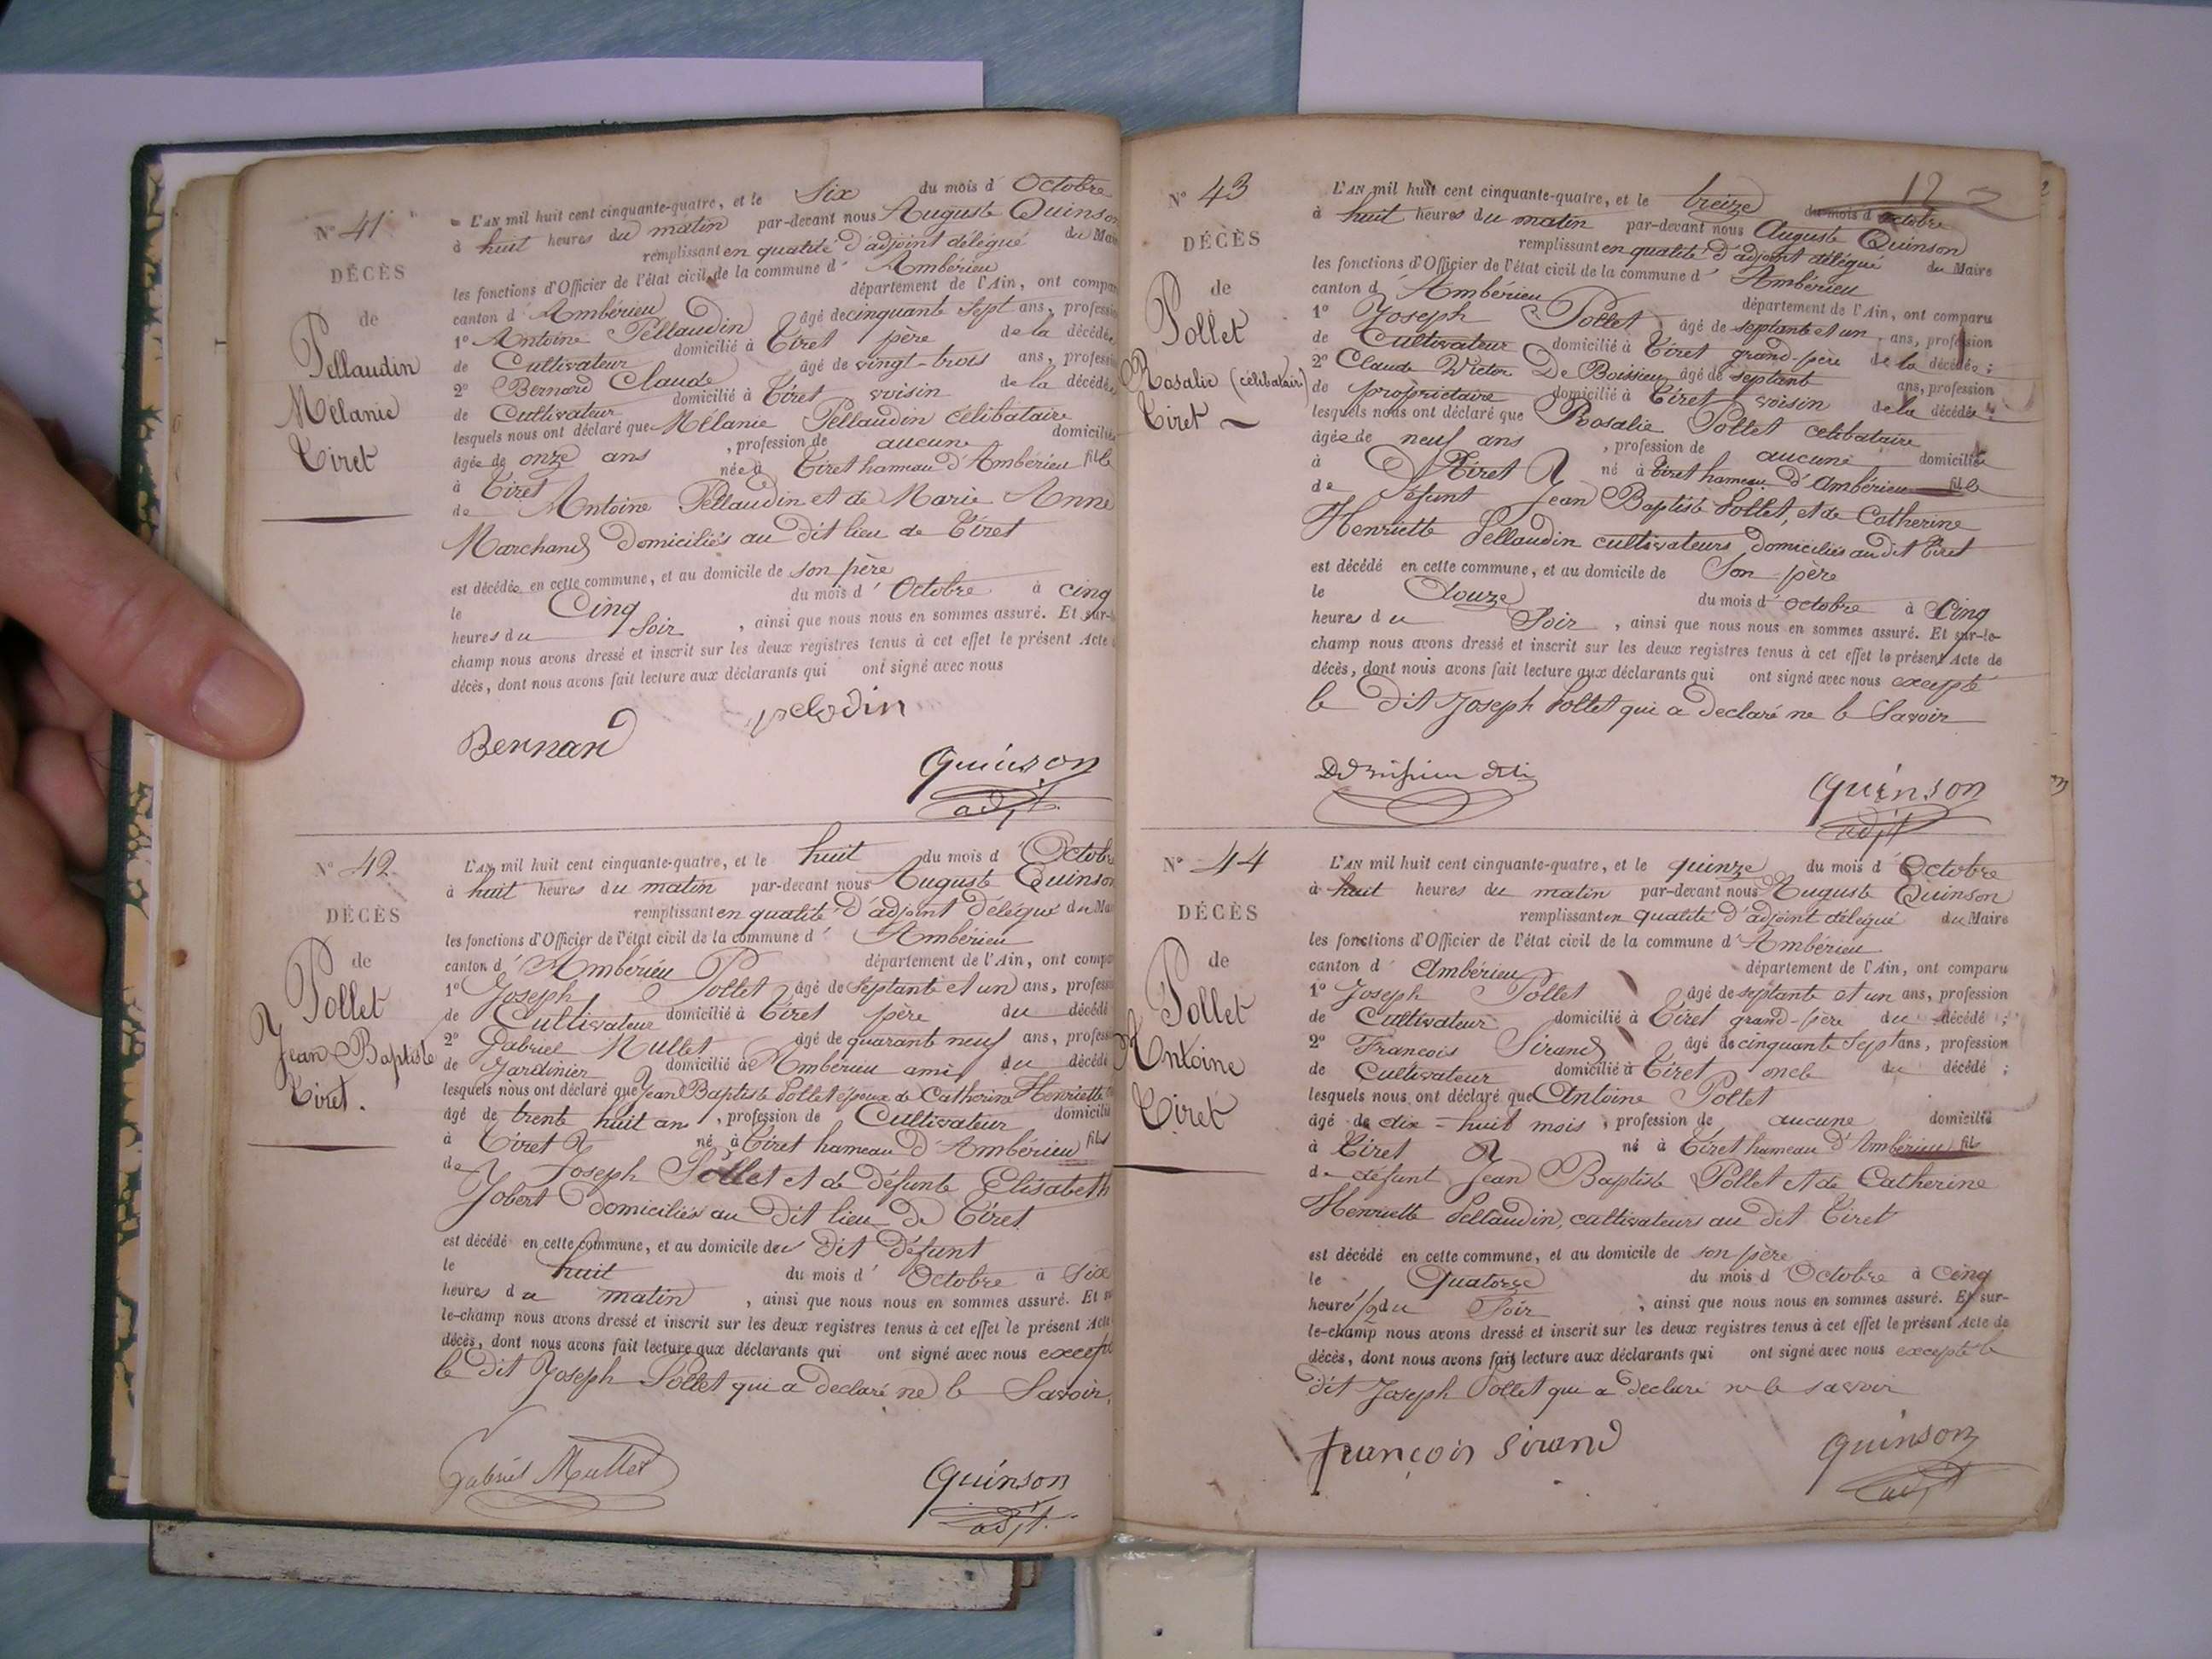 N° 41
DÉCÈS
de
Pellaudin
Mélanie
Tiret
L'AN mil huit cent cinquante-quatre, et le Six du mois d'Octobre
à huit heures du matin par-devant nous Auguste Quinson
remplissant en qualité d'adjoint délégué du Mai
les fonctions d'Officier de l'état civil de la commune d'Ambérieu
canton d'Ambérieu département de l'Ain, ont compa
1° Antoine Pellaudin âgé de cinquante sept ans, professi
de Cultivateur domicilié à Tiret père de la décédée
2° Bernard Claude âgé de vingt-trois ans, professi
de Cultivateur domicilié à Tiret voisin de la décédé
lesquels nous ont déclaré que Mélanie Pellaudin célibataire
âgée de onze ans, profession de aucune domicilié
à Tiret née à Tiret hameau d'Ambérieu fille
de Antoine Pellaudin et de Marie Anne
Marchand domiciliés au dit lieu de Tiret
est décédée en cette commune, et au domicile de son père
le Cinq du mois d'Octobre à cinq
heures du Soir, ainsi que nous nous en sommes assuré. Et sur-
champ nous avons dressé et inscrit sur les deux registres tenus à cet effet le présent Acte
décès, dont nous avons fait lecture aux déclarants qui ont signé avec nous
Bernard
Quinson
adjt
N° 42
DÉCÈS
de
Pollet
Jean Baptiste
Tiret.
L'AN mil huit cent cinquante-quatre, et le huit du mois d'Octobre
à huit heures du matin par-devant nous Auguste Quinson
remplissant en qualité d'adjoint délégué du Ma
les fonctions d'Officier de l'état civil de la commune d'Ambérieu
canton d'Ambérieu département de l'Ain, ont compa
1° Joseph Pollet âgé de septante et un ans, professi
de Cultivateur domicilié à Tiret père du décédé
2° Gabriel Mullet âgé de quarante neuf ans, profess
de Jardinier domicilié à Ambérieu ami du décédé
lesquels nous ont déclaré que Jean Baptiste Pollet époux de Catherine Henriette
âgé de trente huit ans, profession de Cultivateur domicilié
à Tiret né à Tiret hameau d'Ambérieu fils
de Joseph Pollet et de défunte Elisabeth
Jobert domiciliés au dit lieu de Tiret
est décédé en cette commune, et au domicile du dit défunt
le huit du mois d'Octobre à Six
heures du matin, ainsi que nous nous en sommes assuré. Et
le-champ nous avons dressé et inscrit sur les deux registres tenus à cet effet le présent Acte
décès, dont nous avons fait lecture aux déclarants qui ont signé avec nous except
le dit Joseph Pollet qui a declaré ne le Savoir,
Gabriel Mullet
Quinson
adjt.
12
N° 43
DÉCÈS
de
Pollet
Rosalie (célibataire)
Tiret
L'AN mil huit cent cinquante-quatre, et le treize du mois d'octobre
à huit heures du matin par-devant nous Auguste Quinson
remplissant en qualité d'adjoint délégué du Maire
les fonctions d'Officier de l'état civil de la commune d'Ambérieu
canton d'Ambérieu département de l'Ain, ont comparu
1° Joseph Pollet âgé de septante et un ans, profession
de Cultivateur domicilié à Tiret grand-père de la décédée;
2° Claude Victor De Boissieu âgé de septante ans, profession
de propriétaire domicilié à Tiret voisin de la décédée.
lesquels nous ont déclaré que Rosalie Pollet celibataire
âgée de neuf ans, profession de aucune domicilié
à Tiret né à Tiret hameau d'Ambérieu fille
de défunt Jean Baptiste Pollet, et de Catherine
Henriette Pellaudin cultivateurs domiciliés au dit Tiret
est décédé en cette commune, et au domicile de Son père
le Douze du mois d'octobre à Cinq
heures du Soir, ainsi que nous nous en sommes assuré. Et sur-le-
champ nous avons dressé et inscrit sur les deux registres tenus à cet effet le présent Acte de
décès, dont nous avons fait lecture aux déclarants qui ont signé avec nous excepté
le dit Joseph Pollet qui a declaré ne le Savoir
Quinson
adjt
N° 44
DÉCÈS
de
Pollet
Antoine
Tiret
L'AN mil huit cent cinquante-quatre, et le quinze du mois d'Octobre
à huit heures du matin par-devant nous Auguste Quinson
remplissant en qualité d'adjoint délégué du Maire
les fonctions d'Officier de l'état civil de la commune d'Ambérieu
canton d'Ambérieu département de l'Ain, ont comparu
1° Joseph Pollet âgé de septante et un ans, profession
de Cultivateur domicilié à Tiret grand-père du décédé;
2° Francois Sirand âgé de cinquante Sept ans, profession
de Cultivateur domicilié à Tiret oncle du décédé;
lesquels nous ont déclaré que Antoine Pollet
âgé de dix-huit mois, profession de aucune domicilié
à Tiret né à Tiret hameau d'Ambérieu fils
de défunt Jean Baptiste Pollet et de Catherine
Henriette Pellaudin, cultivateurs au dit Tiret
est décédé en cette commune, et au domicile de son père
le Quatorze du mois d'Octobre à Cinq
heures 1/2 du Soir, ainsi que nous nous en sommes assuré. Et sur-
le-champ nous avons dressé et inscrit sur les deux registres tenus à cet effet le présent Acte de
décès, dont nous avons fait lecture aux déclarants qui ont signé avec nous excepté le
dit Joseph Pollet qui a declaré ne le savoir
françois Sirand
Quinson
adjt